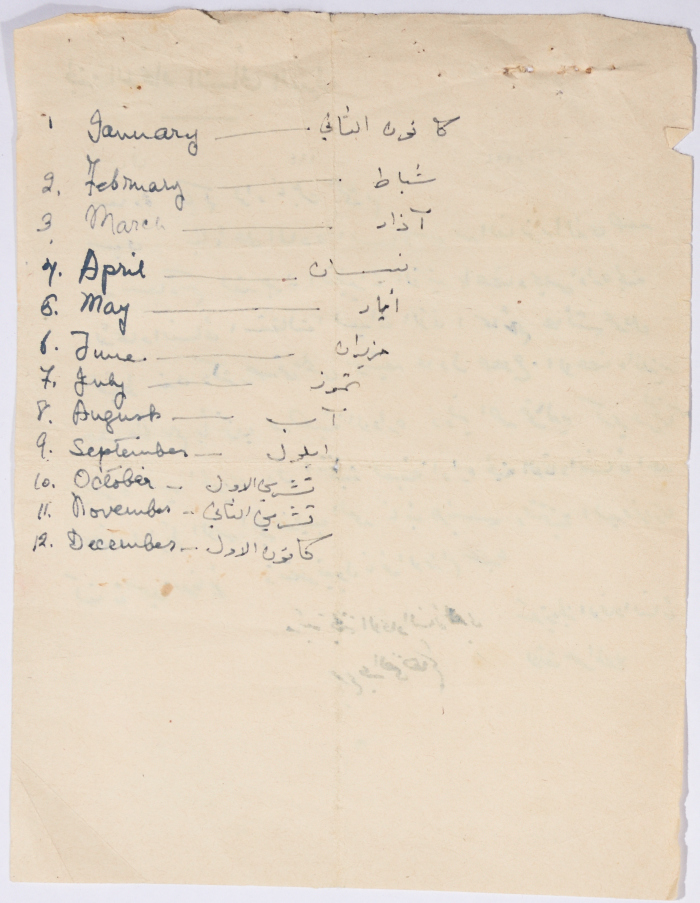 1 January — كانون الثاني
2. February — شباط
3 March — آذار
4. April — نيسان
5. May — أيار
6. June. — حزيران
7. July — تموز
8. August — آب
9. September — ايلول
10. October — تشرين الاول
11. November — تشرين الثاني
12. December — كانون الاول